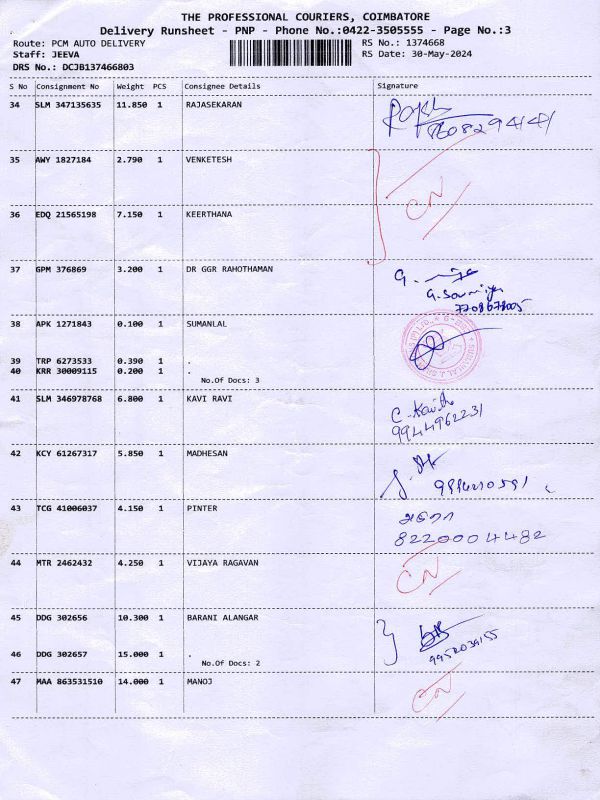 THE PROFESSIONAL COURIERS, COIMBATORE
Delivery Runsheet - PNP - Phone No.:0422-3505555 - Page No.:3
Route: PCM AUTO DELIVERY RS No.: 1374668
Staff: JEEVA RS Date: 30-May-2024
DRS No.: DCJB137466803
S No Consignment No Weight PCS Consignee Details Signature
34 SLM 347135635 11.850 1 RAJASEKARAN
35 AWY 1827184 2.790 1 VENKETESH
CN
36 EDQ 21565198 7.150 1 KEERTHANA
37 GPM 376869 3.200 1 DR GGR RAHOTHAMAN
G. Sowmiya
38 APK 1271843 0.100 1 SUMANLAL
39 TRP 6273533 0.390 1 .
40 KRR 30009115 0.200 1 .
No.Of Docs: 3
41 SLM 346978768 6.800 1 KAVI RAVI
9944962231
42 KCY 61267317 5.850 1 MADHESAN
43 TCG 41006037 4.150 1 PINTER
8220004482
44 MTR 2462432 4.250 1 VIJAYA RAGAVAN
CN
45 DDG 302656 10.300 1 BARANI ALANGAR
46 DDG 302657 15.000 1 .
No.Of Docs: 2
47 MAA 863531510 14.000 1 MANOJ
CN